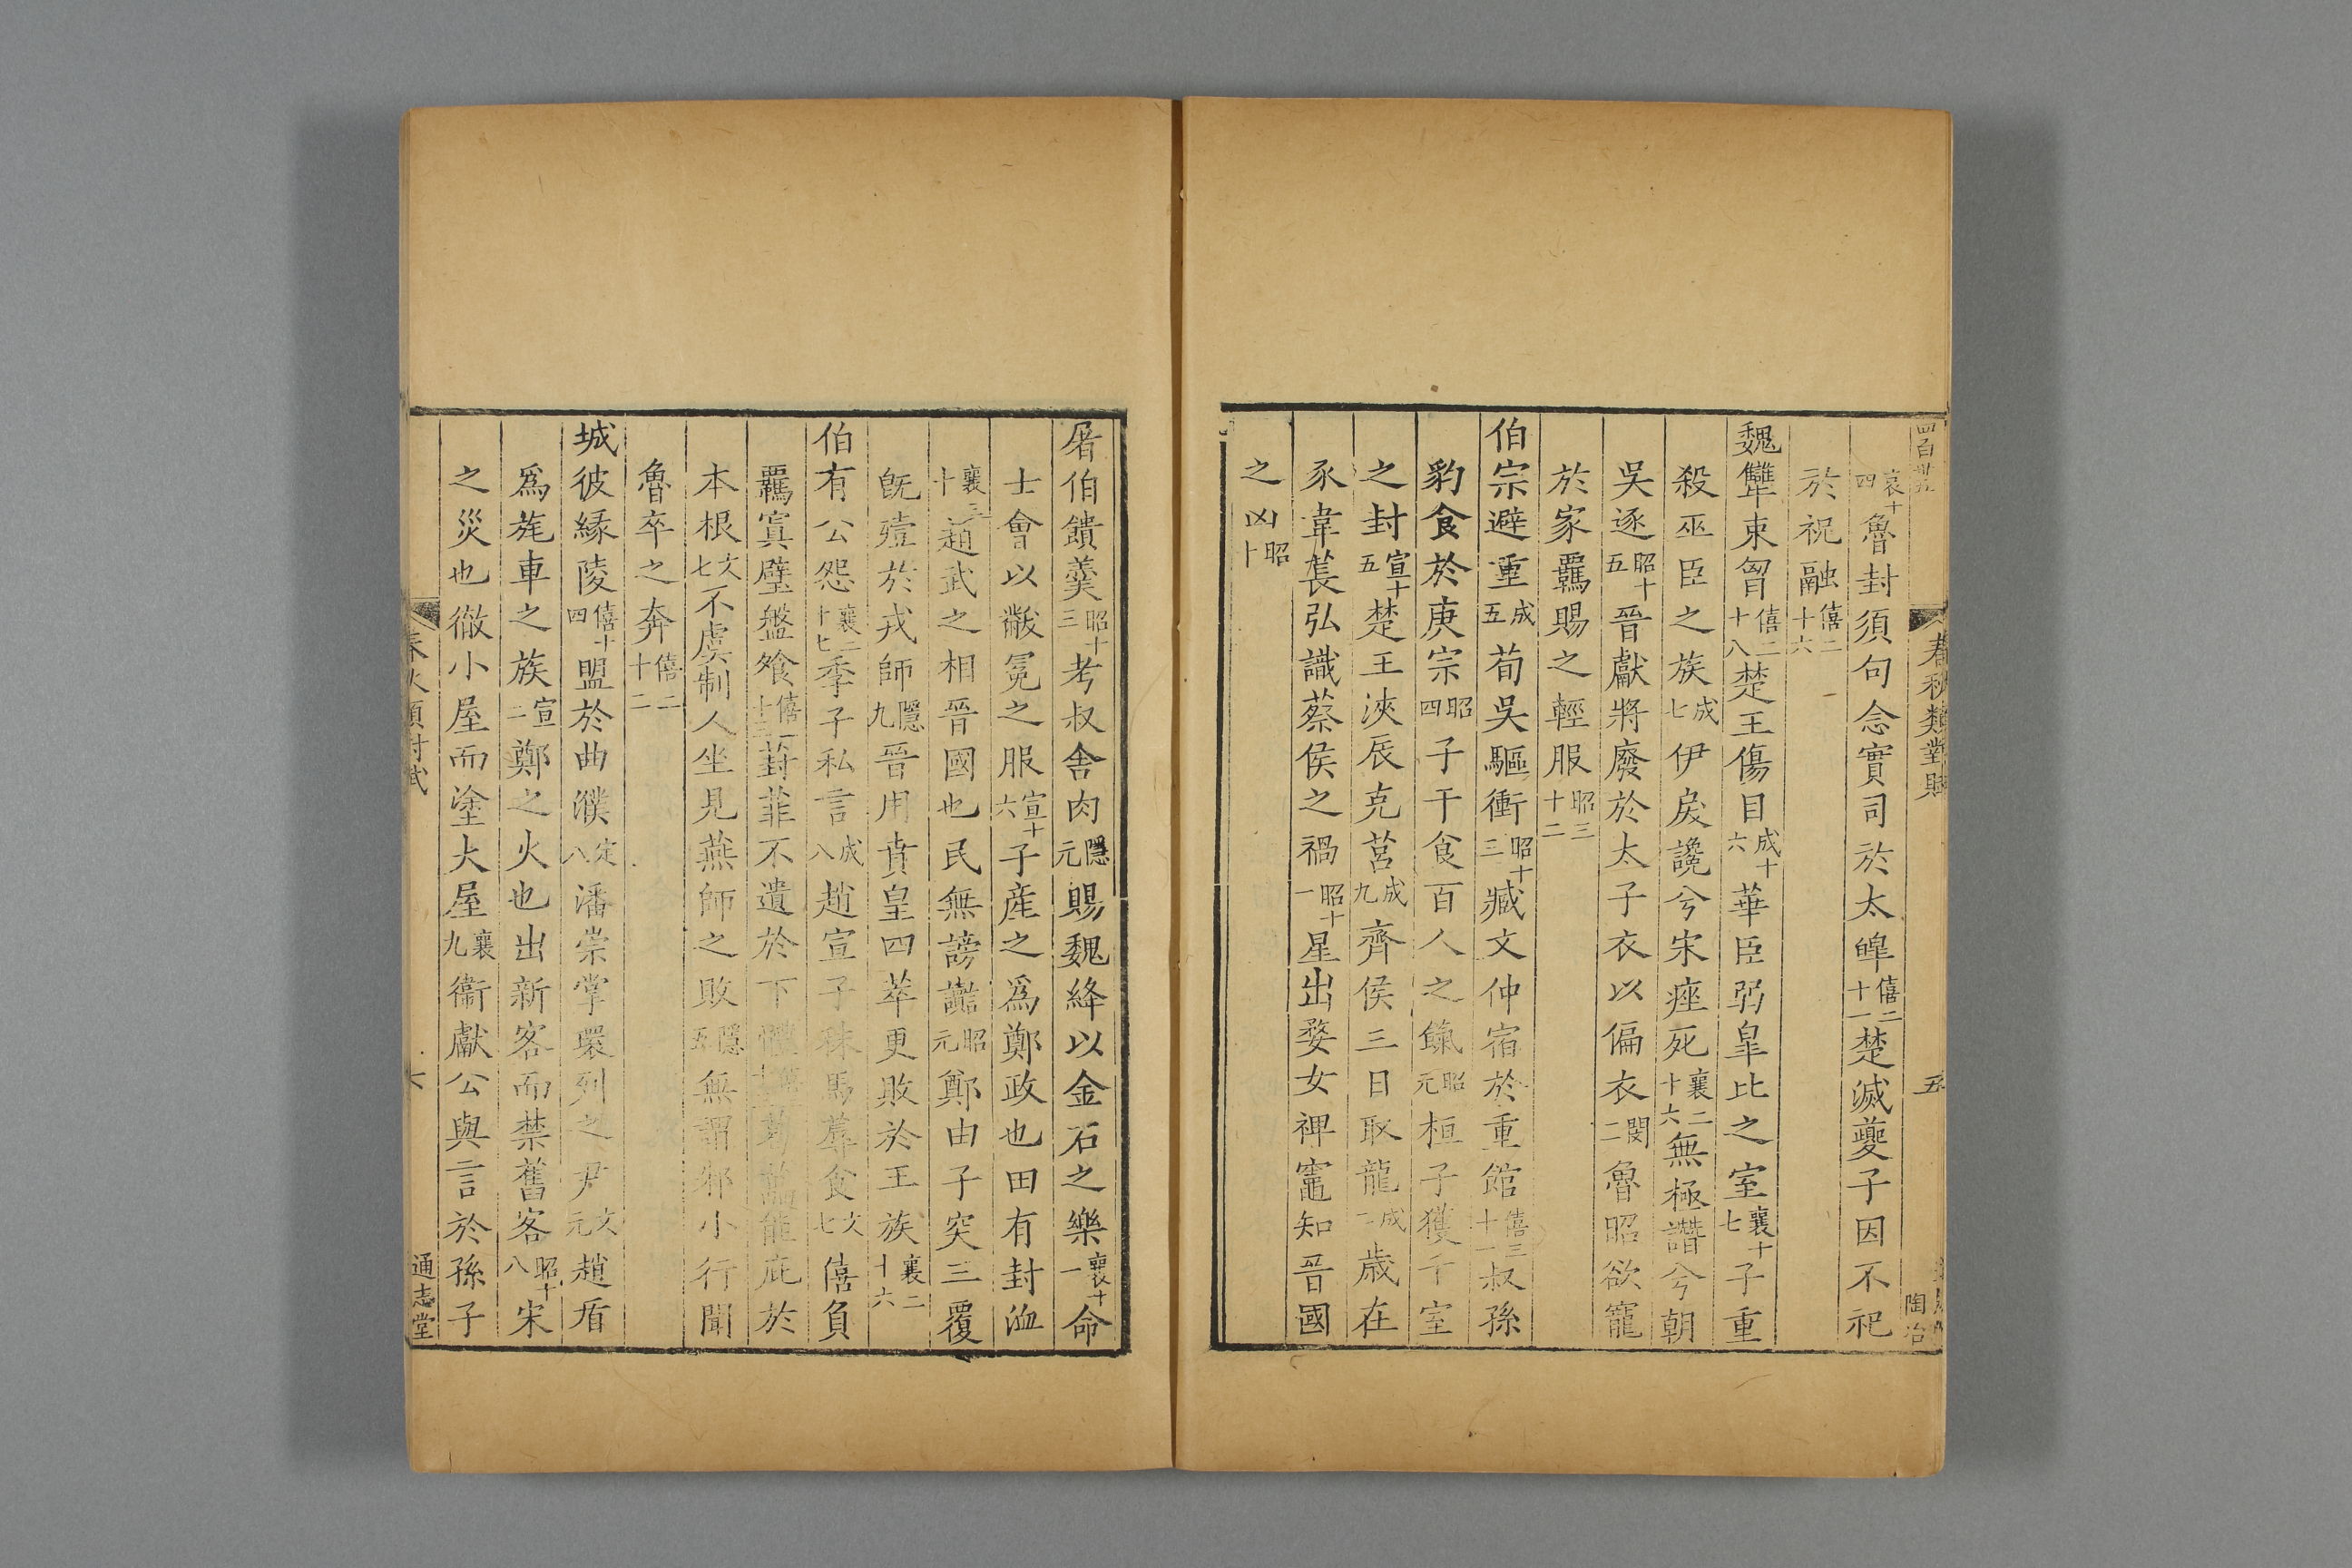 四百卅五
春秋類對賦
五
陶冶
哀十四魯封須句念實司於太皥僖二十一楚滅夔子因不祀
於祝融僖二十六
魏犫束胷僖二十八楚王傷目成十六華臣弱臯比之室襄十七子重
殺巫臣之族成七伊戾讒兮宋痤死襄二十六無極譖兮朝
吳逐昭十五晉獻將廢於太子衣以偏衣閔二魯昭欲寵
於家羈賜之輕服昭三十二
伯宗避重成五荀吳驅衝昭十三臧文仲宿於重館僖三十一叔孫
豹食於庚宗昭四子干食百人之餼昭元桓子獲千室
之封宣十五楚王浹辰克莒成九齊侯三日取龍成二歳在
豕韋萇弘識蔡侯之禍昭十一星出婺女裨竈知晉國
之凶昭十
屠伯饋羹昭十三考叔舍肉隱元賜魏絳以金石之樂襄十一命
士會以黻冕之服宣十六子産之爲鄭政也田有封洫
襄三十趙武之相晉國也民無謗讟昭元鄭由子突三覆
旣殪於戎師隱九晉用賁皇四萃更敗於王族襄二十六
伯有公怨襄二十七季子私言成八趙宣子秣馬蓐食文七僖負
羈寘璧盤飧僖二十三葑菲不遺於下體僖三十三葛藟能庇於
本根文七不虞制人坐見燕師之敗隱五無謂邾小行聞
魯卒之奔僖二十二
城彼緣陵僖十四盟於曲濮定八潘崇掌環列之尹文元趙盾
爲旄車之族宣二鄭之火也出新客而禁舊客昭十八宋
之災也徹小屋而塗大屋襄九衞獻公與言於孫子
春秋類對賦
六
通志堂